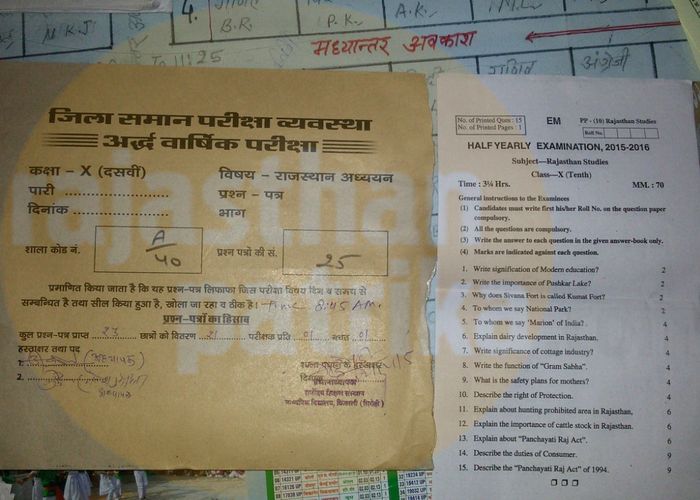 4.
B.R.
P.K.
A.K.
M.K.J
मध्यान्तर अवकाश
11:25
गणित
अंग्रेजी
जिला समान परीक्षा व्यवस्था
अर्द्ध वार्षिक परीक्षा
कक्षा - X (दसवीं) विषय - राजस्थान अध्ययन
पारी .................... प्रश्न - पत्र
दिनांक .................... भाग
शाला कोड नं. A/40 प्रश्न पत्रों की सं. 25
प्रमाणित किया जाता है कि यह प्रश्न-पत्र लिफाफा जिस परीक्षा विषय दिन व समय से
सम्बन्धित है तथा सील किया हुआ है, खोला जा रहा व ठीक है। Time 8:45 AM.
प्रश्न-पत्रों का हिसाब
कुल प्रश्न-पत्र प्राप्त 23 छात्रों को वितरण 21 परीक्षक प्रति 01 01
हस्ताक्षर तथा पद
1.
2.
No. of Printed Ques : 15
No. of Printed Pages : 1
EM
PP - (10) Rajasthan Studies
Roll No.
HALF YEARLY EXAMINATION, 2015-2016
Subject—Rajasthan Studies
Class—X (Tenth)
Time : 3¼ Hrs. MM. : 70
General instructions to the Examinees
(1) Candidates must write first his/her Roll No. on the question paper
compulsory.
(2) All the questions are compulsory.
(3) Write the answer to each question in the given answer-book only.
(4) Marks are indicated against each question.
1. Write signification of Modern education? 2
2. Write the importance of Pushkar Lake? 2
3. Why does Sivana Fort is called Kumat Fort? 2
4. To whom we say National Park? 2
5. To whom we say 'Marion' of India? 4
6. Explain dairy development in Rajasthan. 4
7. Write significance of cottage industry? 4
8. Write the function of "Gram Sabha". 4
9. What is the safety plans for mothers? 4
10. Describe the right of Protection. 4
11. Explain about hunting prohibited area in Rajasthan, 6
12. Explain the importance of cattle stock in Rajasthan. 6
13. Explain about "Panchayati Raj Act". 6
14. Describe the duties of Consumer. 9
15. Describe the "Panchayati Raj Act" of 1994. 9